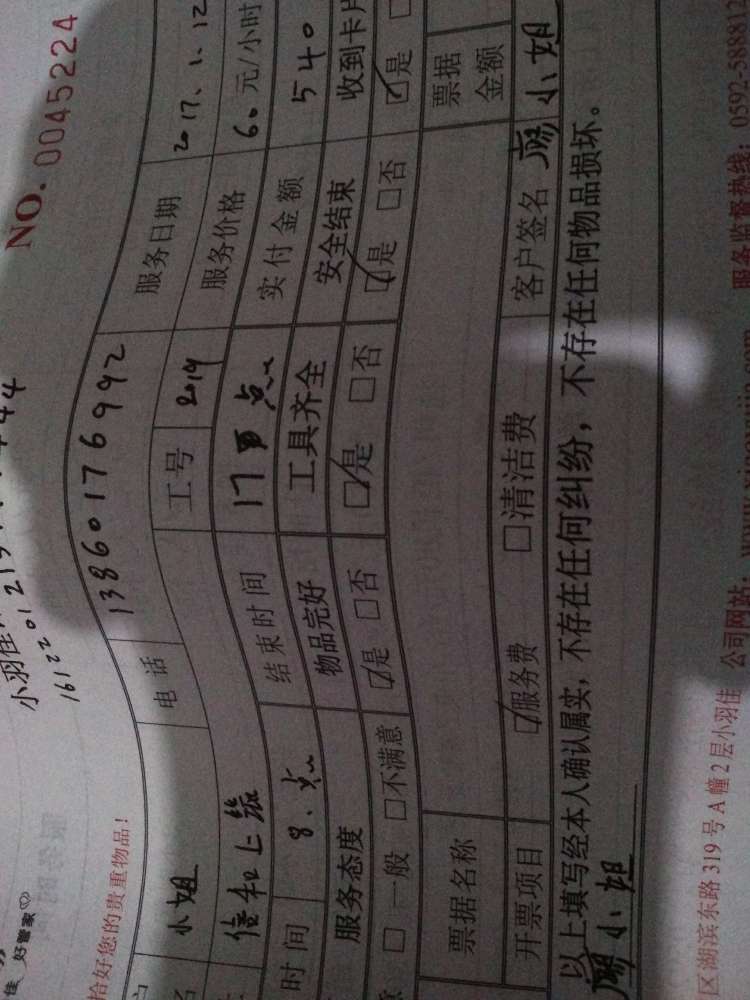 小羽佳
好管家
NO. 0045224
拾好您的贵重物品！
小姐 电话 13860176992 服务日期 2017.1.12
信和上筑 工号 2019 服务价格 60元/小时
时间 8.点 结束时间 17点 实付金额 540
服务态度 物品完好 工具齐全 安全结束 收到卡片
□一般 □不满意 ☑是 □否 ☑是 □否 ☑是 □否 ☑是 □
票据名称 票据金额
开票项目 ☑服务费 □清洁费 客户签名 小姐
以上填写经本人确认属实，不存在任何纠纷，不存在任何物品损坏。
小姐
区湖滨东路319号A幢2层小羽佳 公司网站： 服务监督热线：0592-588812